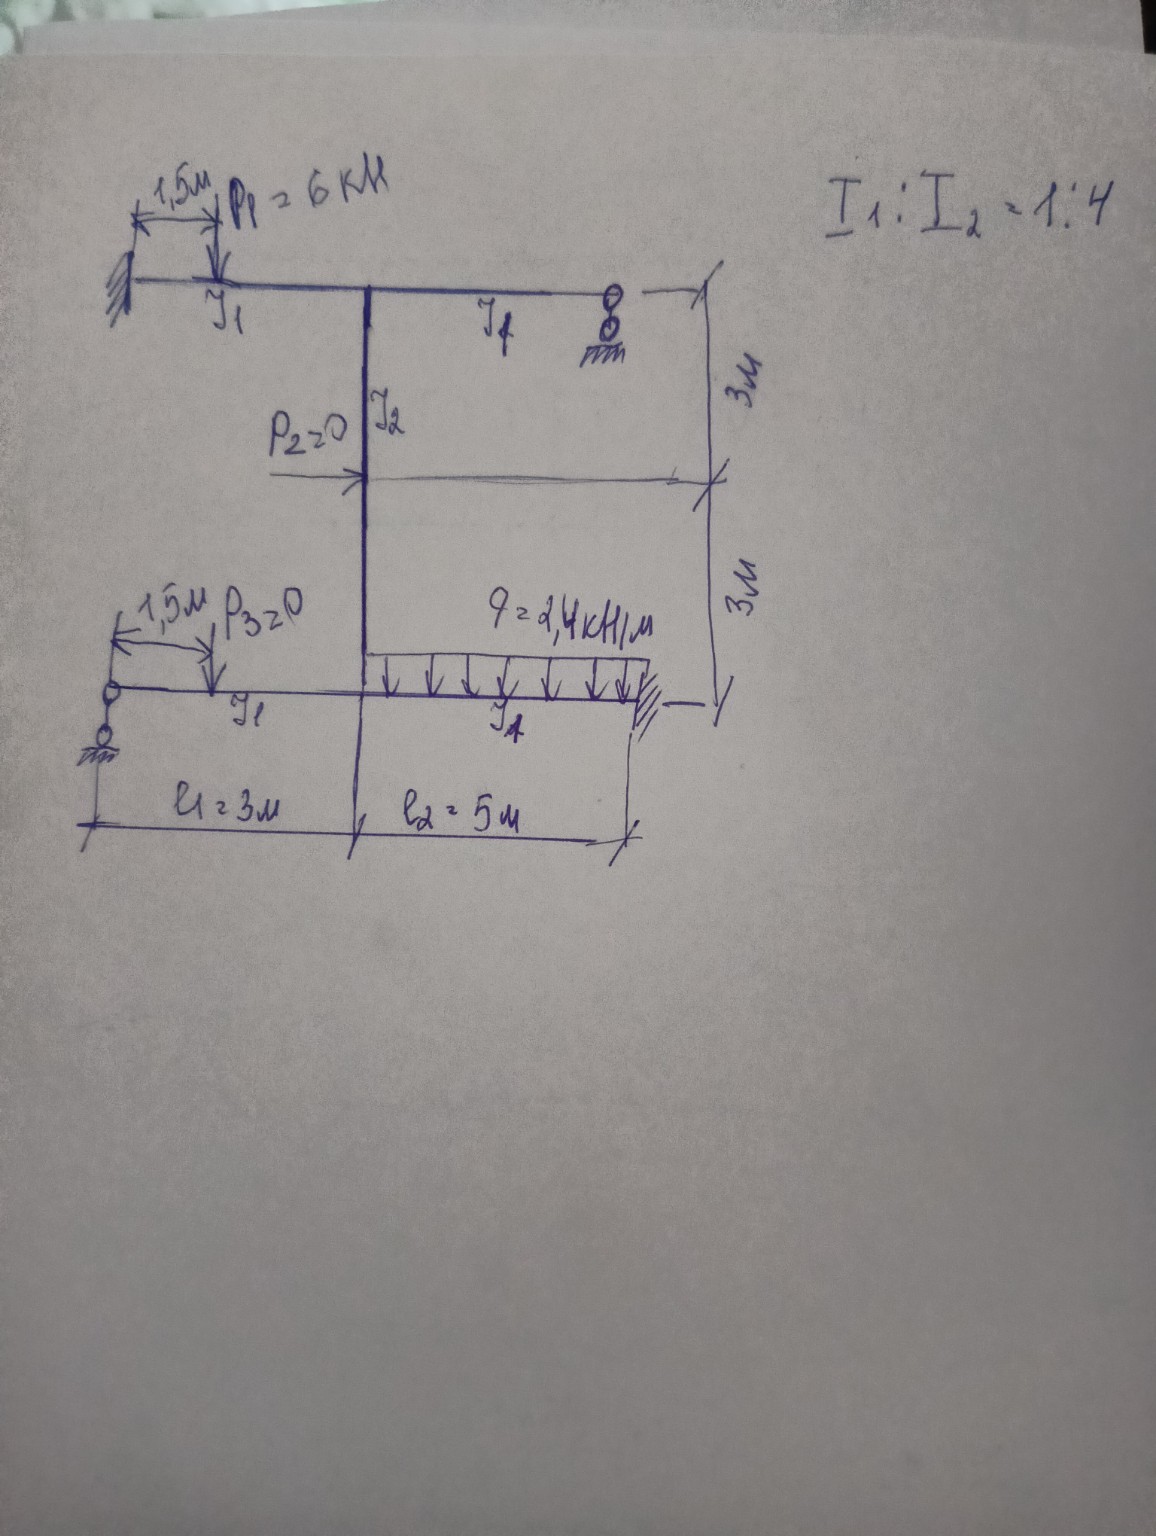 1,5м P1 = 6 кН
I1 : I2 = 1:4
J1
J1
3м
J2
P2=0
3м
1,5м P3=0
q=2,4кН/м
J1
J1
l1=3м
l2=5м